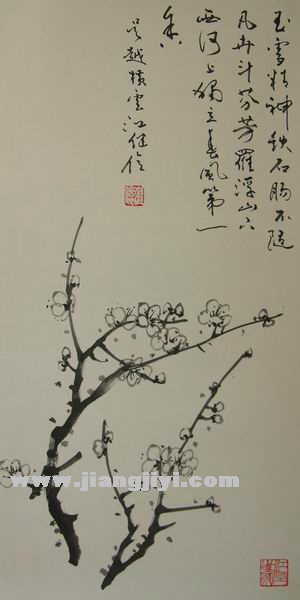 玉雪精神鉄石肠不随
凡卉斗芬芳羅浮山下
西湖上獨立春風第一
香
吴越横雲江
www.jiangjiyi.com